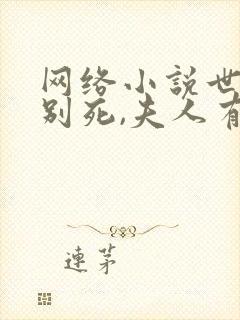 网络小说世
别死,夫人有
连茅